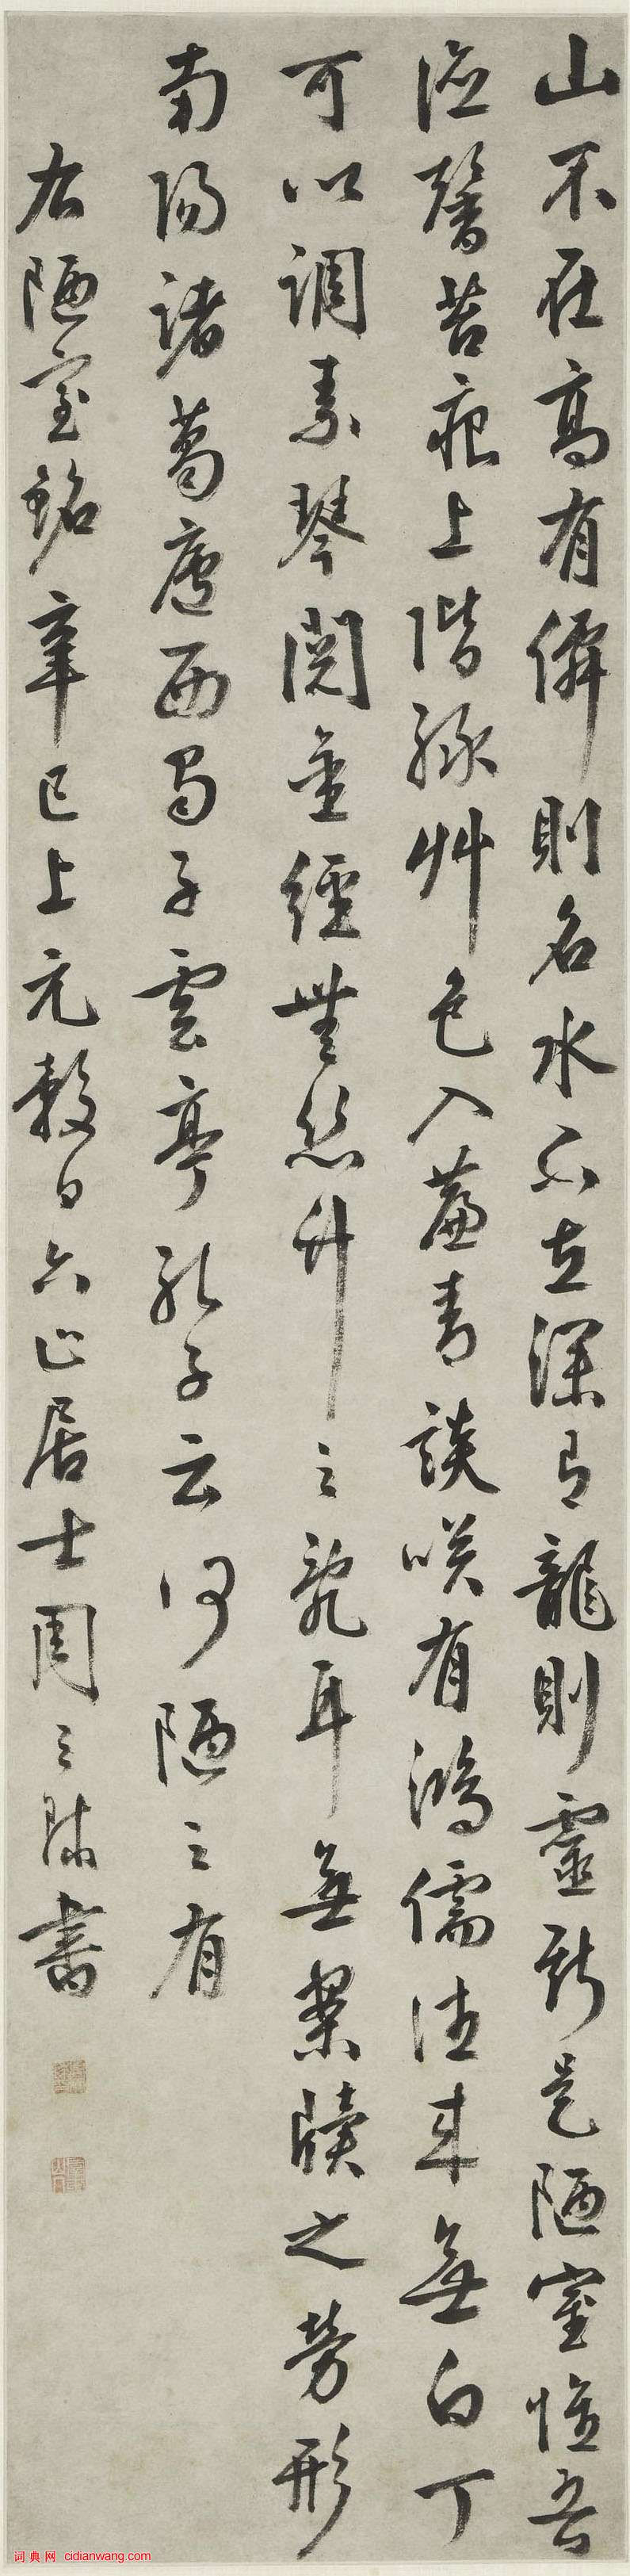 山不在高有僊則名水不在深有龍則靈斯是陋室惟吾
德馨苔痕上階綠艸色入簾青談咲有鴻儒往来無白丁
可以調素琴閱金經無絲竹之亂耳無案牘之勞形
南陽諸葛廬西蜀子雲亭孔子云何陋之有
右陋室銘辛巳上元穀日六止居士周之 書
词典网 cidianwang.com